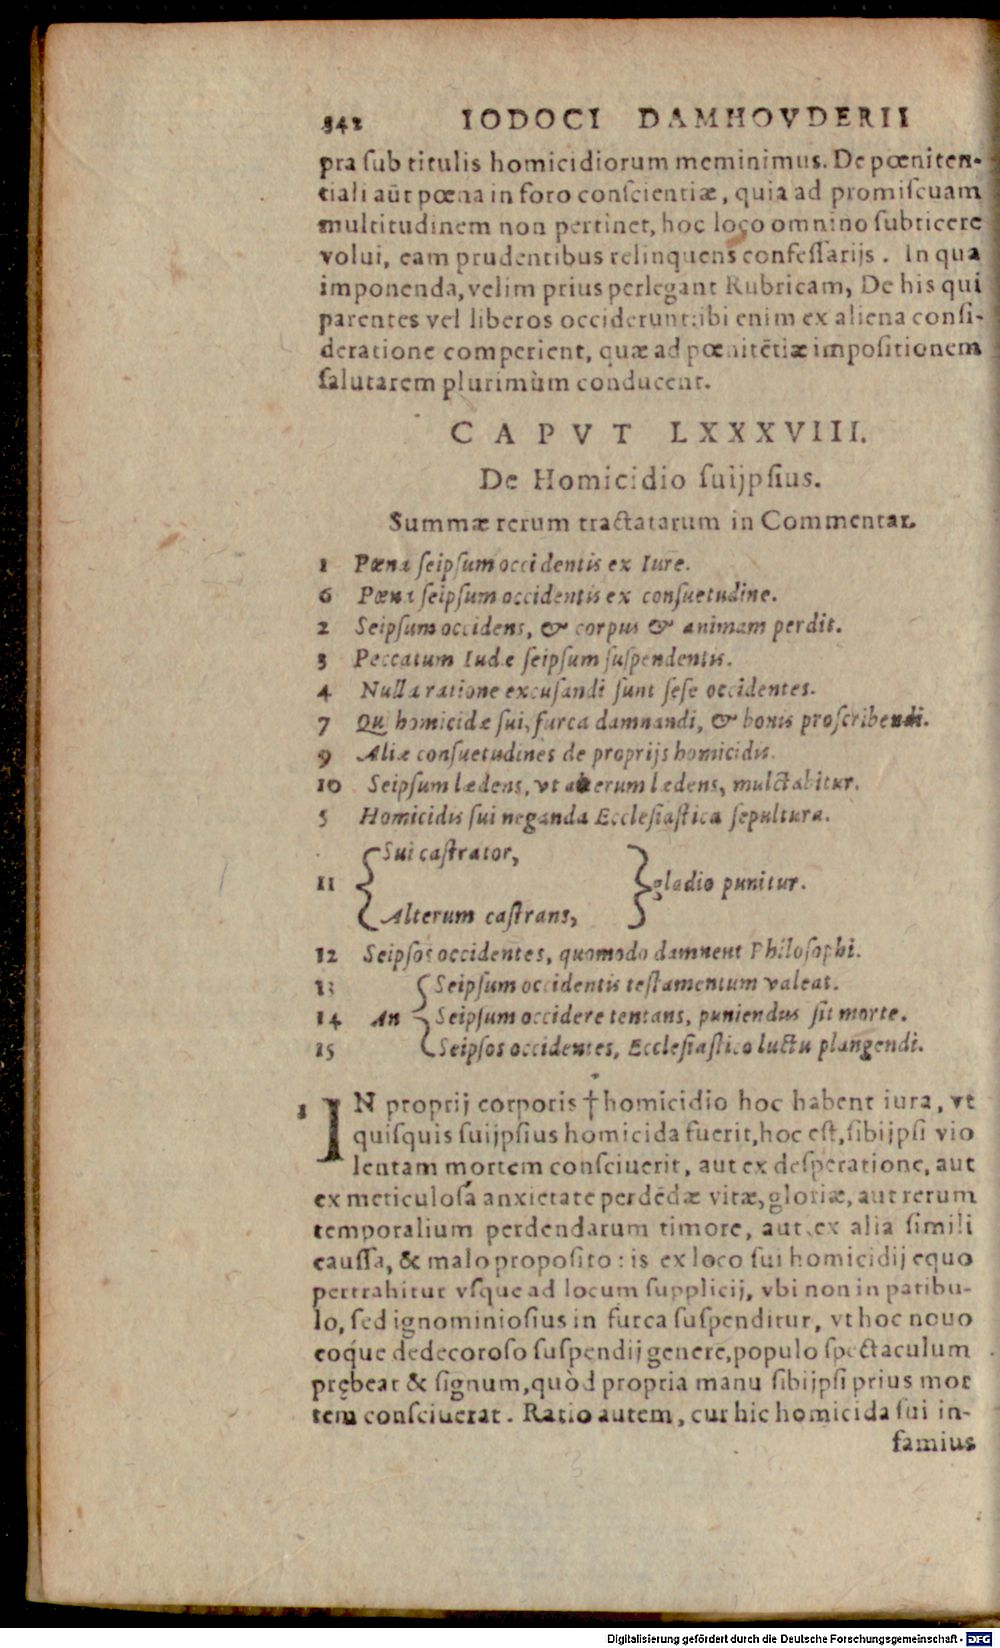 342 IODOCI DAMHOVDERII
pra ſub titulis homicidiorum meminimus. De pœniten-
tiali aūt pœna in foro conſcientiæ, quia ad promiſcuam
multitudinem non pertinet, hoc loco omnino ſubticere
volui, eam prudentibus relinquens confeſſarijs. In qua
imponenda, velim prius perlegant Rubricam, De his qui
parentes vel liberos occiderunt: ibi enim ex aliena conſi-
deratione comperient, quæ ad pœnitētiæ impoſitionem
ſalutarem plurimùm conducent.
CAPVT LXXXVIII.
De Homicidio ſuijpſius.
Summæ rerum tractatarum in Commentar.
1 Pœna ſeipſum occidentis ex Iure.
6 Pœna ſeipſum occidentis ex conſuetudine.
2 Seipſum occidens, & corpus & animam perdit.
3 Peccatum Iudæ ſeipſum ſuſpendentis.
4 Nulla ratione excuſandi ſunt ſeſe occidentes.
7 Qui homicidæ ſui, furca damnandi, & bonis proſcribendi.
9 Aliæ conſuetudines de proprijs homicidis.
10 Seipſum lædens, vt alterum lædens, mulctabitur.
5 Homicidis ſui neganda Eccleſiaſtica ſepultura.
Sui caſtrator,
11 gladio punitur.
Alterum caſtrans,
12 Seipſos occidentes, quomodo damnent Philoſophi.
13 Seipſum occidentis teſtamentum valeat.
14 An Seipſum occidere tentans, puniendus ſit morte.
15 Seipſos occidentes, Eccleſiaſtico luctu plangendi.
1 IN proprij corporis † homicidio hoc habent iura, vt
quiſquis ſuijpſius homicida fuerit, hoc eſt, ſibijpſi vio
lentam mortem conſciuerit, aut ex deſperatione, aut
ex meticuloſa anxietate perdēdæ vitæ, gloriæ, aut rerum
temporalium perdendarum timore, aut ex alia ſimili
cauſſa, & malo propoſito: is ex loco ſui homicidij equo
pertrahitur vſque ad locum ſupplicij, vbi non in patibu-
lo, ſed ignominioſius in furca ſuſpenditur, vt hoc nouo
eoq́ue dedecoroſo ſuſpendij genere, populo ſpectaculum
prębeat & ſignum, quòd propria manu ſibijpſi prius mor
tem conſciuerat. Ratio autem, cur hic homicida ſui in-
famius
Digitalisierung gefördert durch die Deutsche Forschungsgemeinschaft - DFG